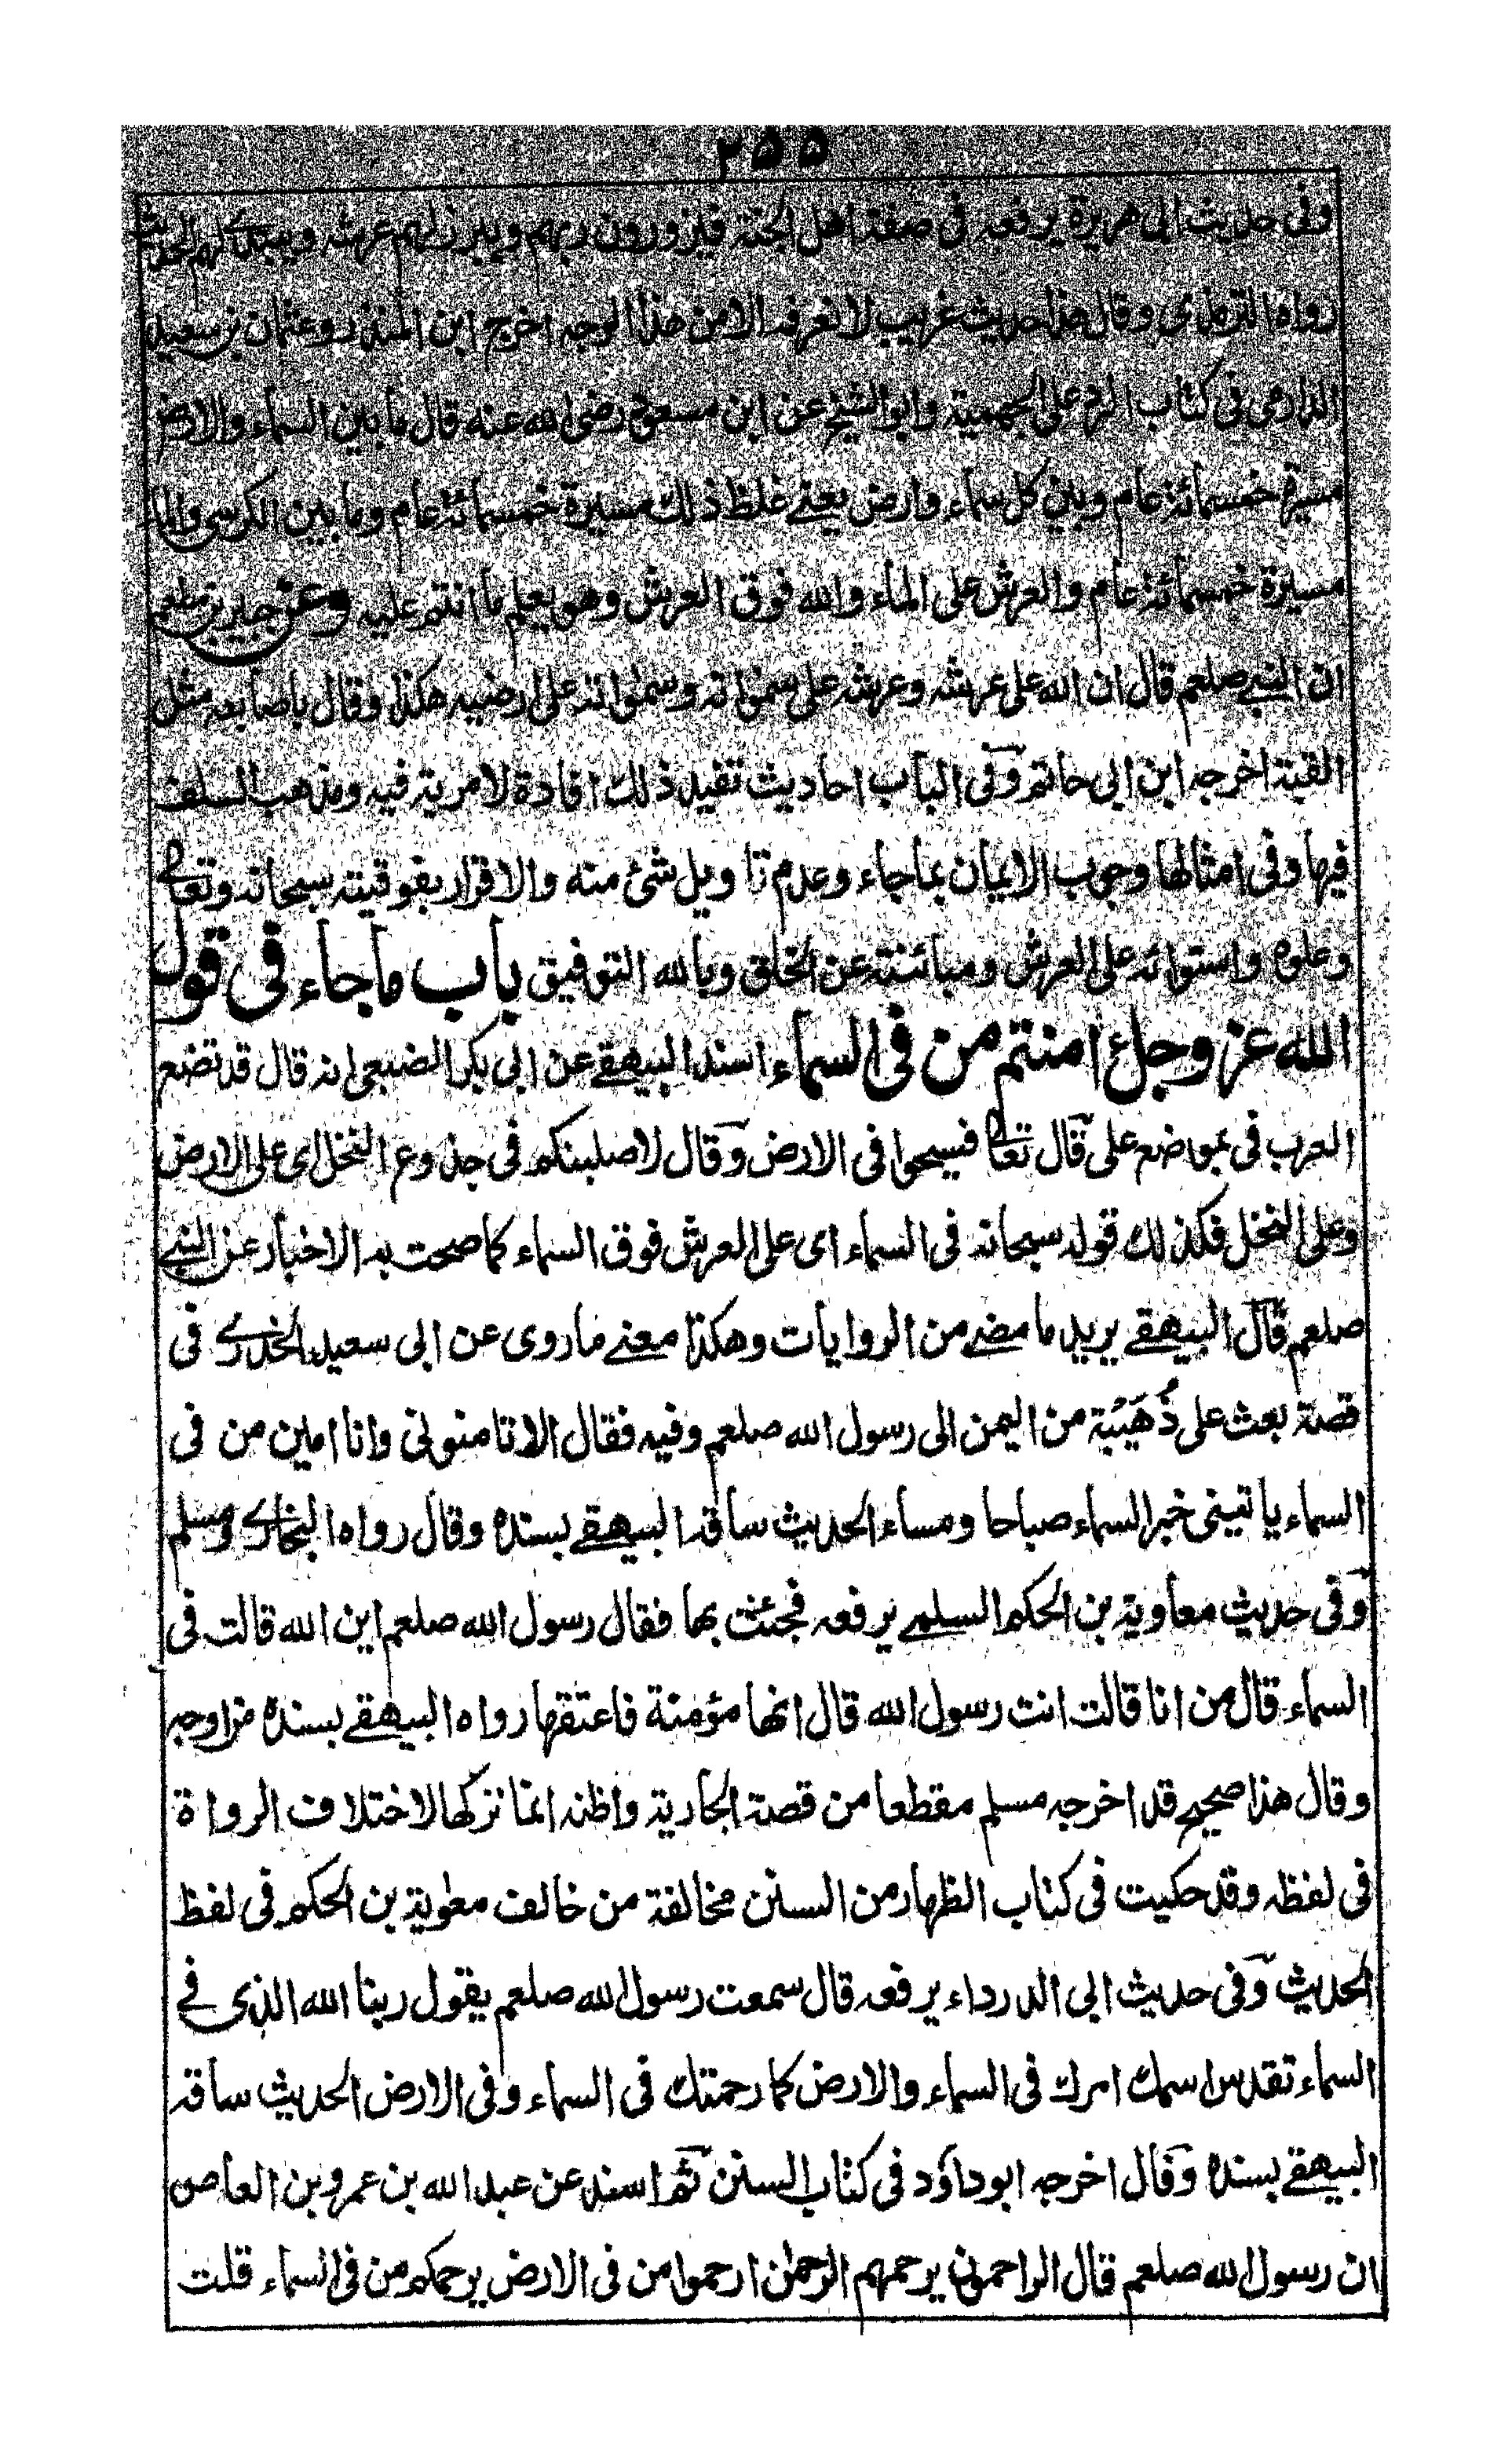 ٢٥٥
وفى حديث ابى هريرة يرفعه فى صفة اهل الجنة فيزورون ربهم ويبرز لهم عرشه ويتبدى لهم الحديث
رواه الترمذى وقال هذا حديث غريب لا نعرفه الا من هذا الوجه اخرج ابن المنذر وعثمان بن سعيد
الدارمى فى كتاب الرد على الجهمية وابو الشيخ عن ابن مسعود رضى الله عنه قال ما بين السماء والارض
مسيرة خمسمائة عام وبين كل سماء وارض يعنے غلظ ذلك مسيرة خمسمائة عام وما بين الكرسى والماء
مسيرة خمسمائة عام والعرش على الماء والله فوق العرش وهو يعلم ما انتم عليه وعن جبير بن مطعم
ان النبے صلعم قال ان الله على عرشه وعرشه على سمٰواته وسمٰواته على ارضيه هكذا وقال باصابعه مثل
القبة اخرجه ابن ابى حاتم وفى الباب احاديث تفيد ذلك افادة لا مرية فيه ومذهب السلف
فيها وفى امثالها وجوب الايمان بما جاء وعدم تاويل شئ منه والاقرار بفوقيته سبحانه وتعالى
وعلوه واستوائه على العرش ومبائنته عن الخلق وبالله التوفيق باب ما جاء فى قول
الله عز وجل ءامنتم من فى السماء اسند البيهقے عن ابى بكر الضبعى انه قال قد تضع
العرب فى بموضع على قال تعالى فسيحوا فى الارض وقال لاصلبنكم فى جذوع النخل اى على الارض
وعلى النخل فكذلك قوله سبحانه فى السماء اى على العرش فوق السماء كما صحت به الاخبار عن النبے
صلعم قال البيهقے يريد ما مضے من الروايات وهكذا معنے ما روى عن ابى سعيد الخدرى فى
قصة بعث على ذُهَيْبَة من اليمن الى رسول الله صلعم وفيه فقال الا تامنونى وانا امين من فى
السماء ياتينى خبر السماء صباحا ومساء الحديث ساقه البيهقے بسنده وقال رواه البخارى ومسلم
وفى حديث معاوية بن الحكم السلمے يرفعه فجئت بها فقال رسول الله صلعم اين الله قالت فى
السماء قال من انا قالت انت رسول الله قال انها مؤمنة فاعتقها رواه البيهقے بسنده من اوجه
وقال هذا صحيح قد اخرجه مسلم مقطعا من قصة الجارية واظنه انما تركها لاختلاف الرواة
فى لفظه وقد حكيت فى كتاب الظهار من السنن مخالفة من خالف معٰوية بن الحكم فى لفظ
الحديث وفى حديث ابى الدرداء يرفعه قال سمعت رسول الله صلعم يقول ربنا الله الذى فے
السماء تقدس اسمك امرك فى السماء والارض كما رحمتك فى السماء وفى الارض الحديث ساقه
البيهقے بسنده وقال اخرجه ابو داؤد فى كتاب السنن ثم اسند عن عبد الله بن عمرو بن العاص
ان رسول الله صلعم قال الراحمون يرحمهم الرحمٰن ارحموا من فى الارض يرحمكم من فى السماء قلت